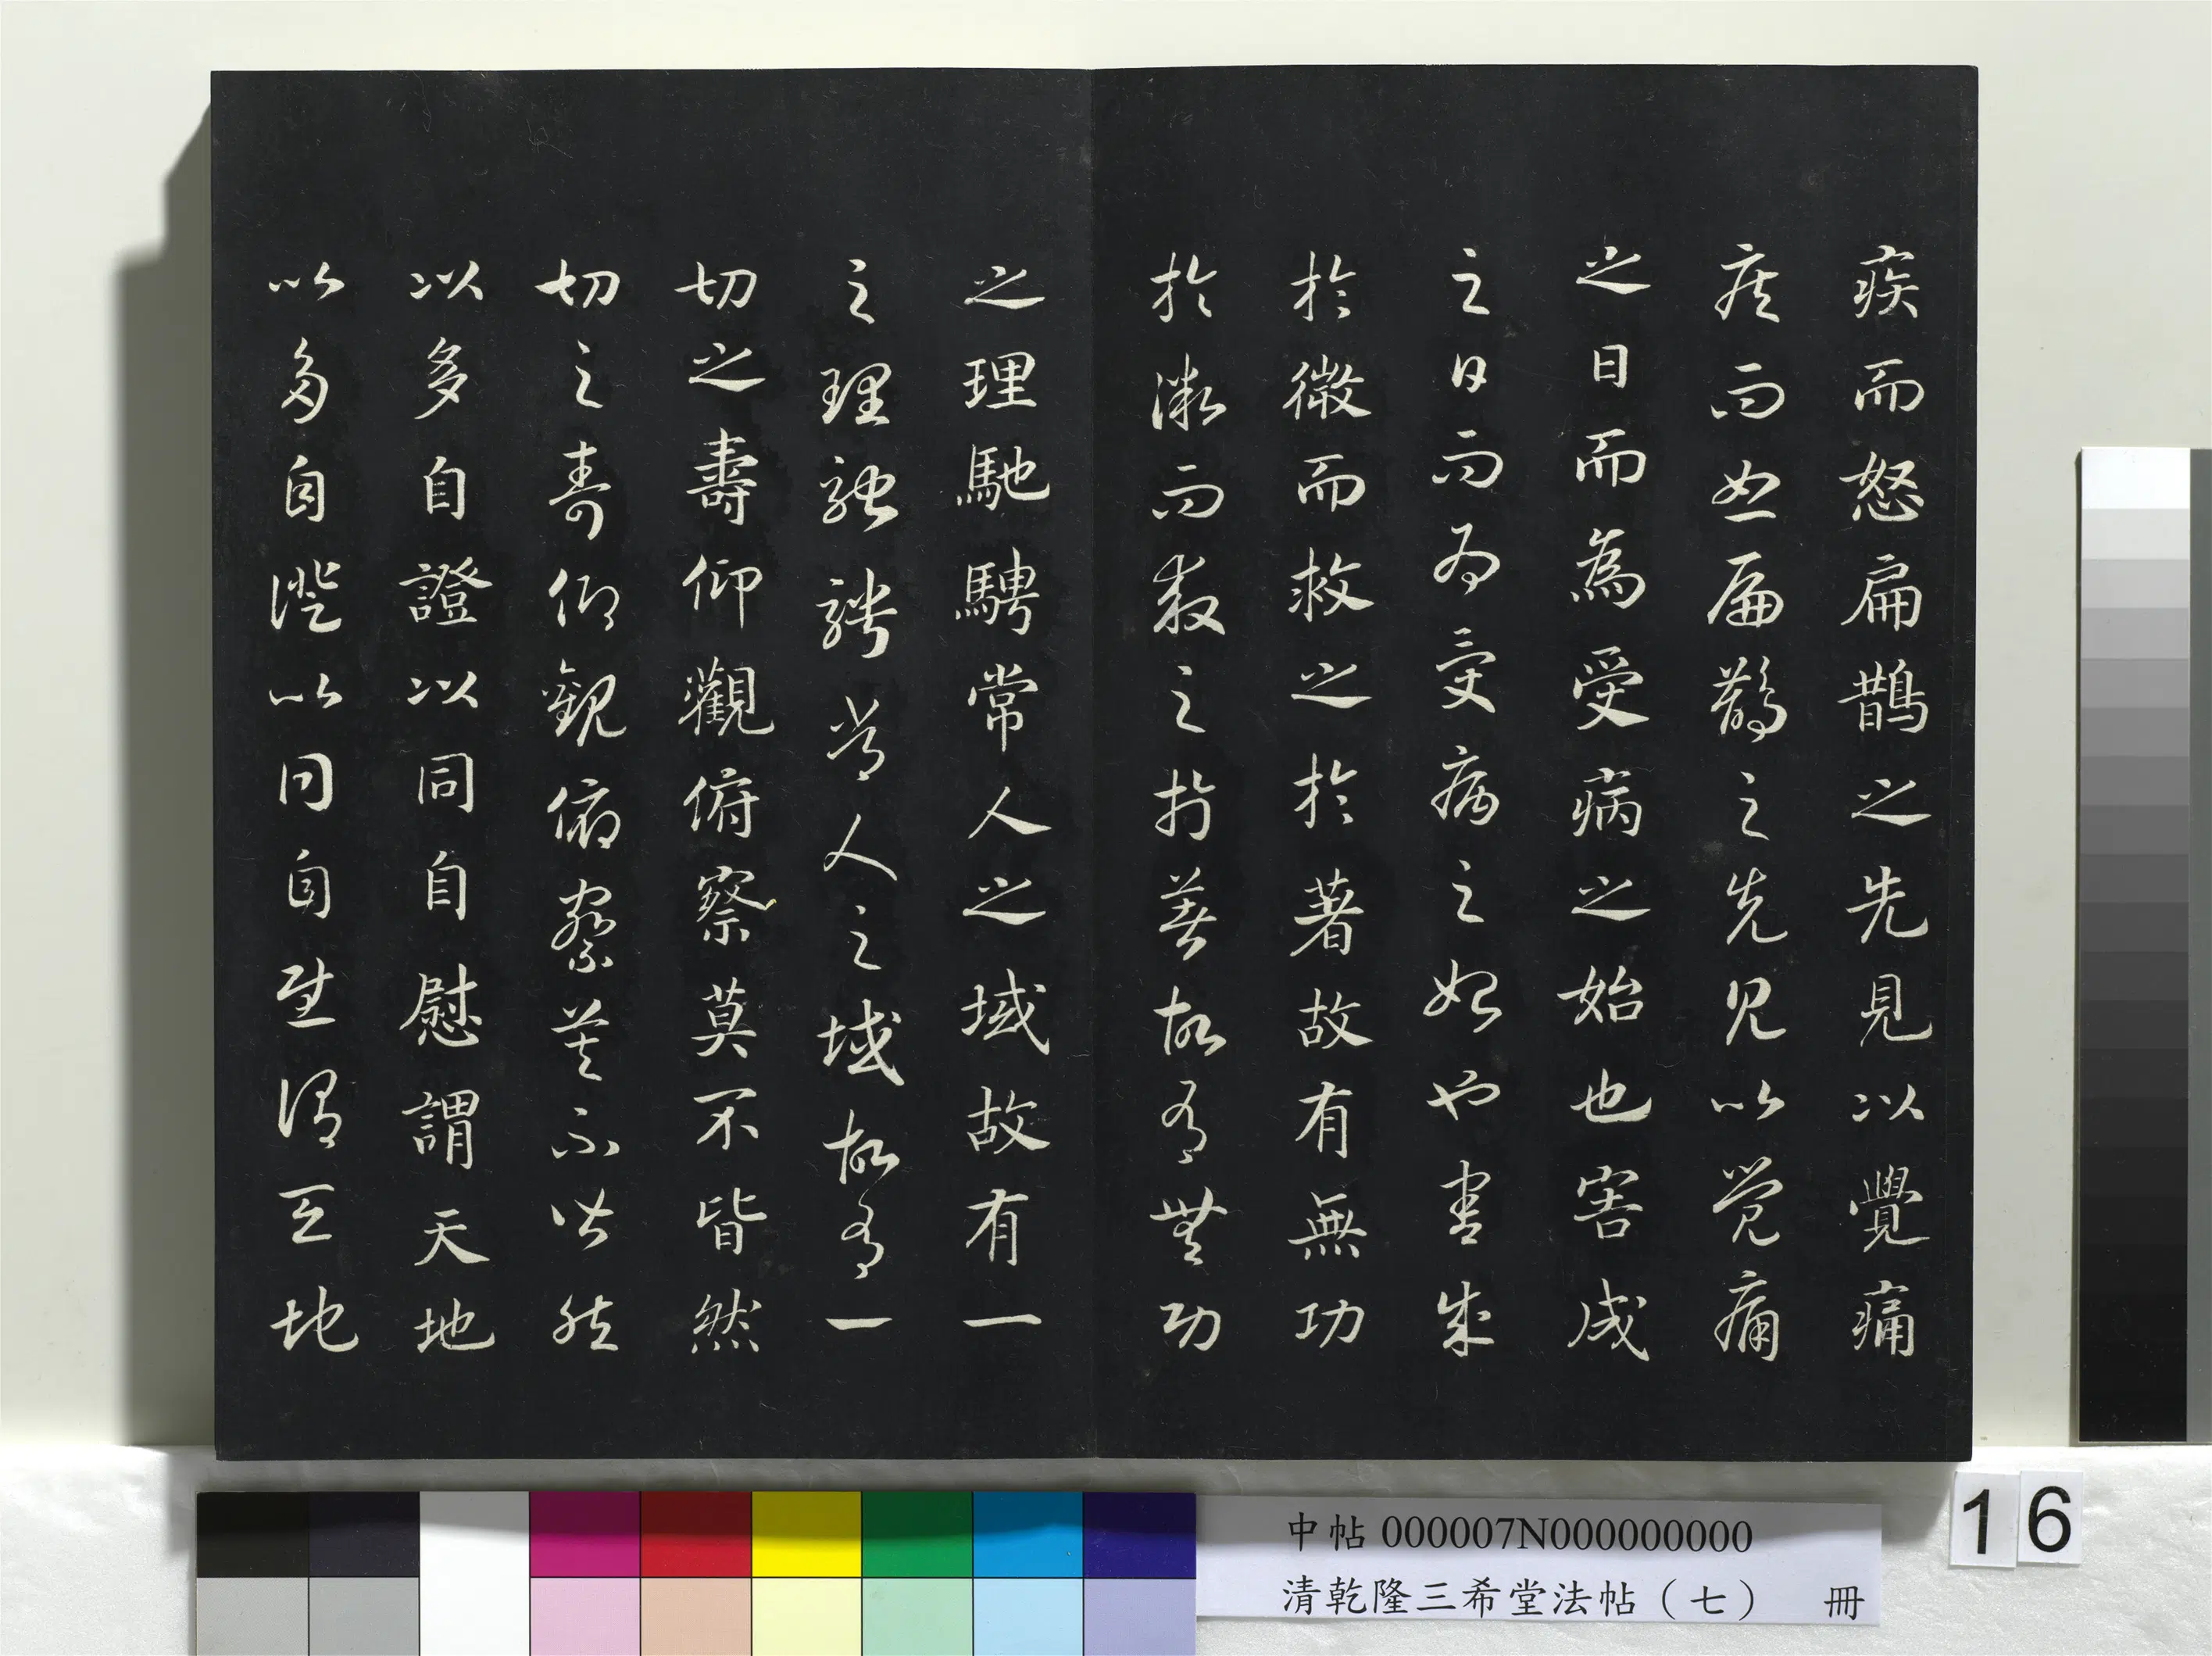 疾而怒扁鵲之先見以覺痛
疾而怒扁鵲之先見以覺痛
之日而為受病之始也害成
之日而為受病之始也害成
於微而救之於著故有無功
於微而救之於著故有無功
之理馳騁常人之域故有一
之理馳騁常人之域故有一
切之壽仰觀俯察莫不皆然
切之壽仰觀俯察莫不皆然
以多自證以同自慰謂天地
以多自證以同自慰謂天地
中帖 000007N000000000
清乾隆三希堂法帖（七） 冊
16